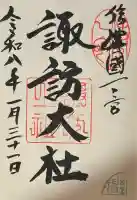 信濃國一之宮
諏訪大社
令和八年一月三十一日